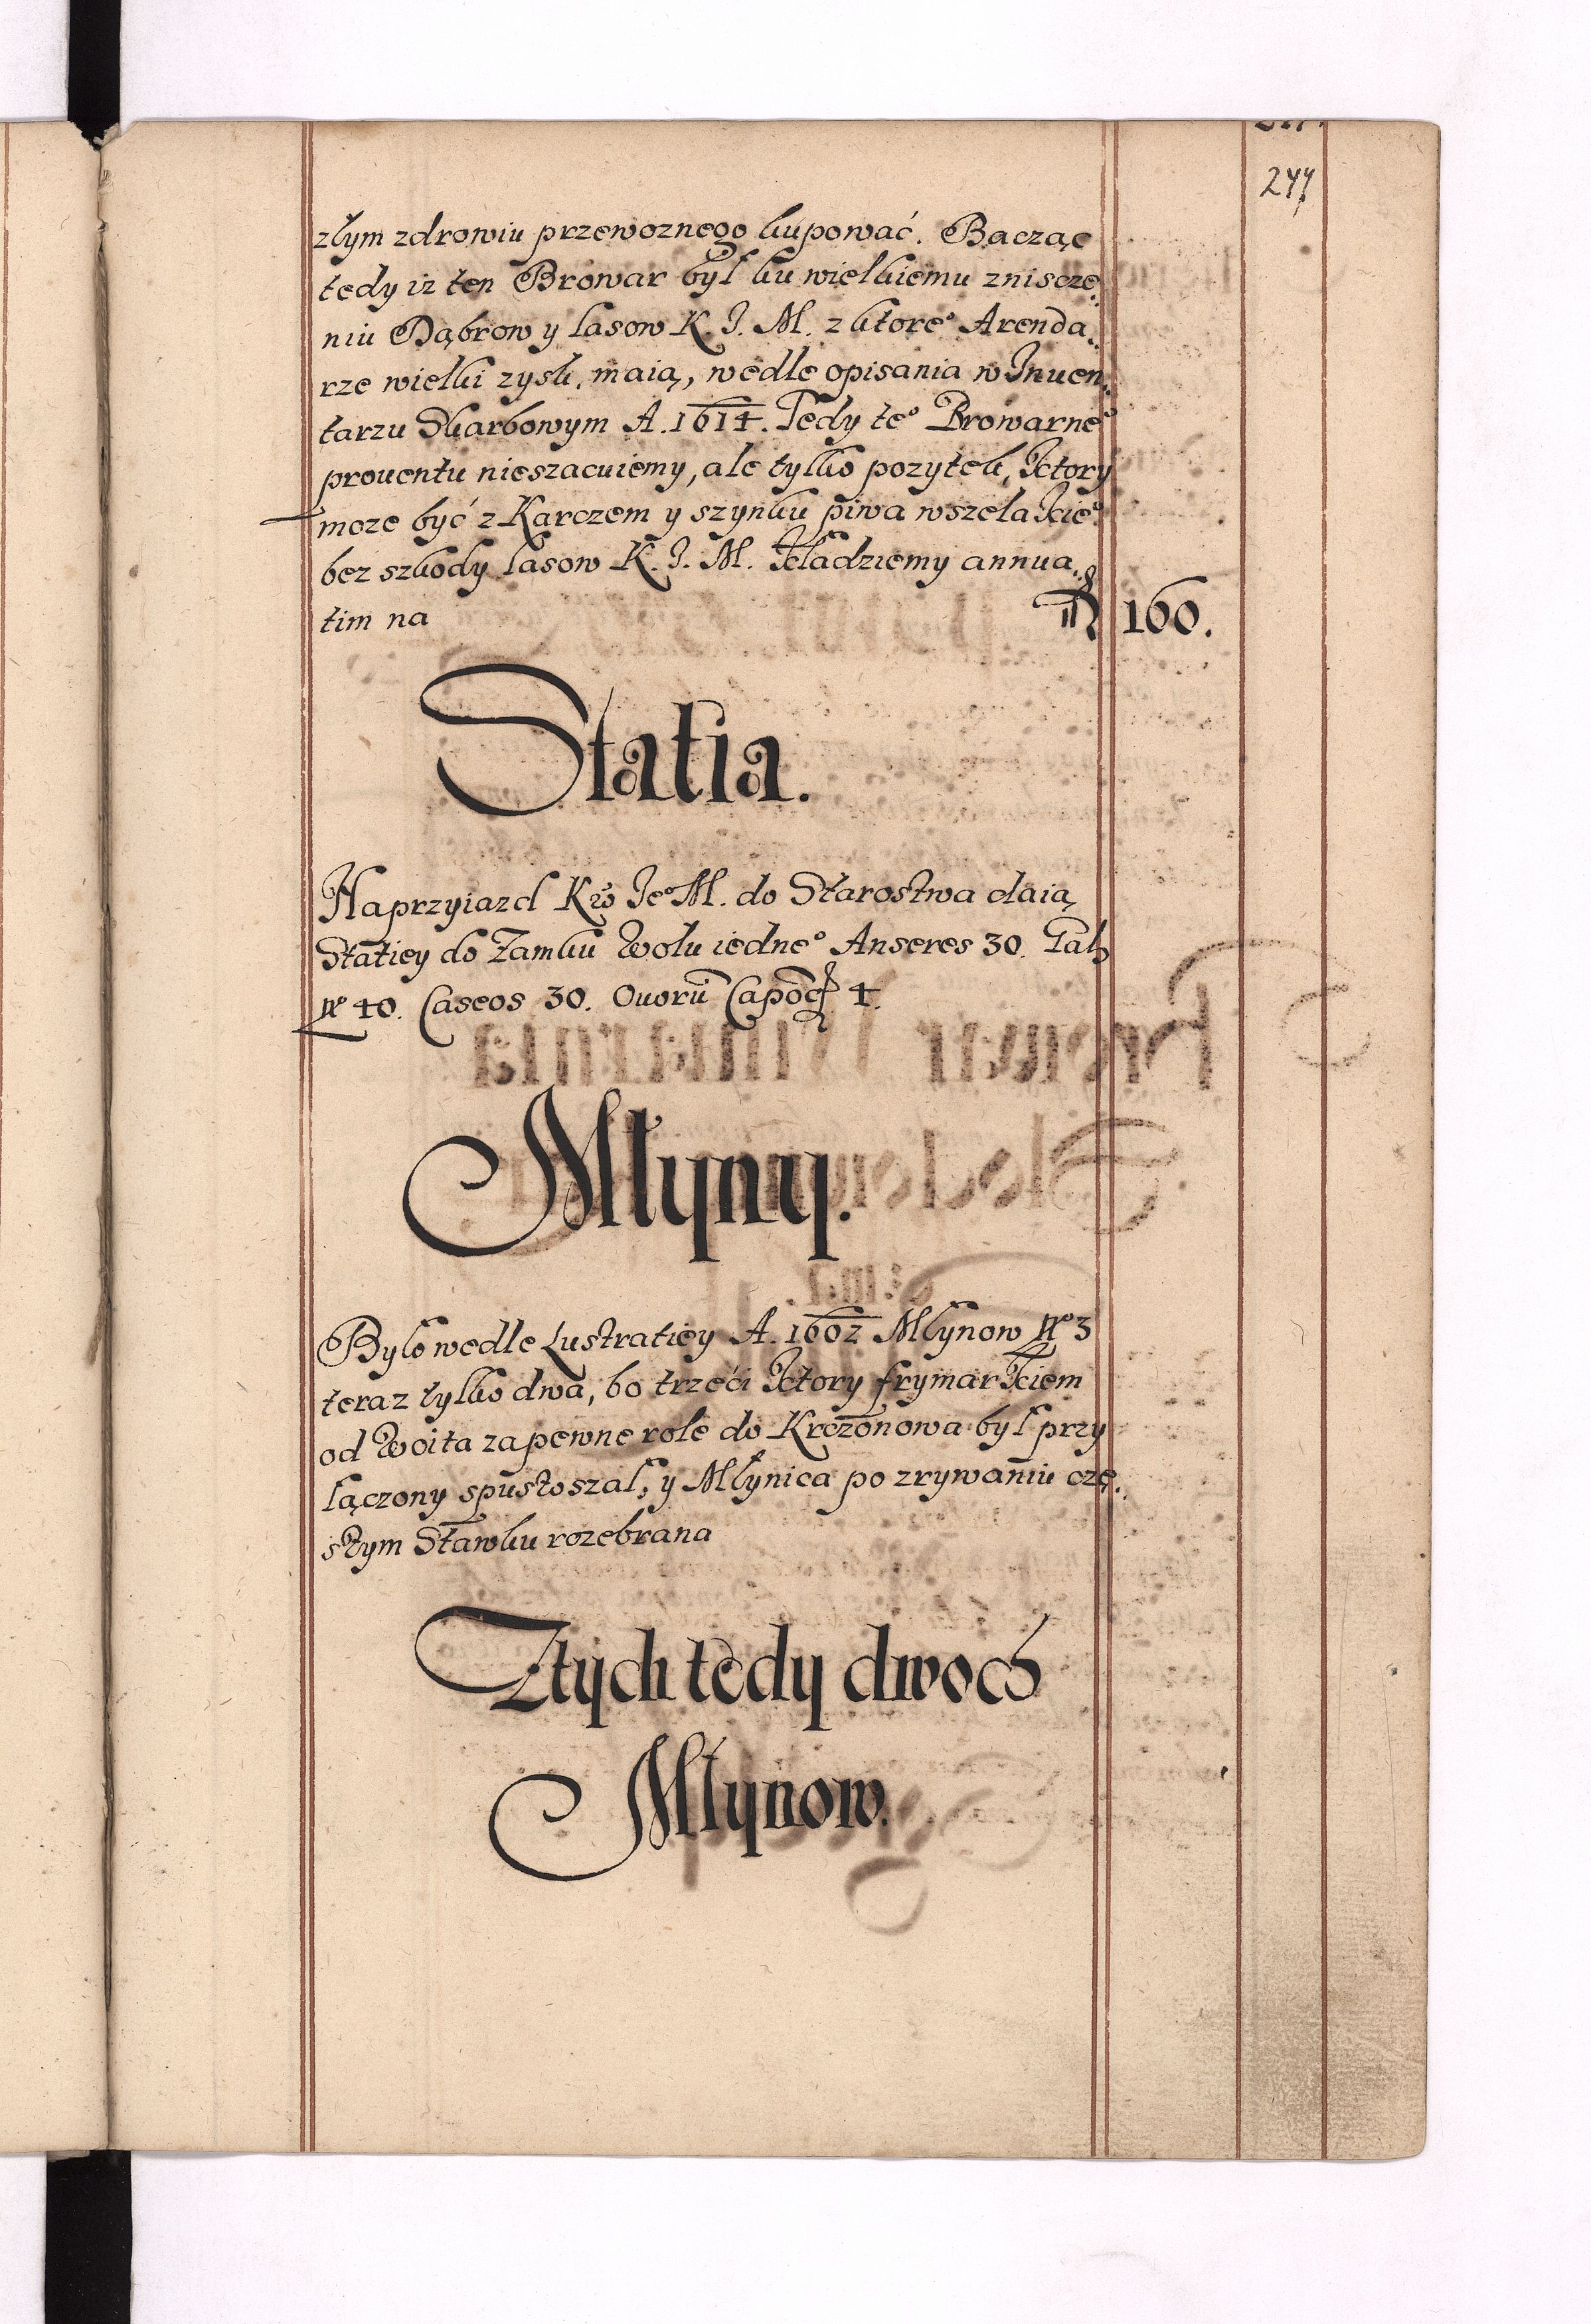 244
złym zdrowiu przewoznego kupować. Bacząc
tedy iż ten Browar był ku wielkiemu zniscze,,
niu Dąbrow y lasow K. J. M. z ktoreº Arenda,,
rze wielki zysk maią, wedle opisania w Inuen,,
tarzu Skarbowym A. 1614. Tedy teº Browarneº
prouentu nieszacuiemy, ale tylko pozytek, ktory
moze być z Karczem y szynku piwa wszelakieº
bez szkody lasow K. J. M. kładziemy annua,,
tim na 160.
Statia.
Na przyiazd K Jeº M. do Starostwa daią
Statiey do Zamku Wołu iedneº Anseres 30. Gall
nº 40. Caseos 30. Ouorū Capō 4.
Młyny.
Było wedle Lustratiey A. 1602 Młynow nº 3
teraz tylko dwa, bo trzeći ktory frymarkiem
od Woita za pewne role do Krczonowa był przy
łączony spustoszał, y Młynica po zrywaniu czę,,
stym Stawku rozebrana
Z tych tedy dwoch
Młynow.